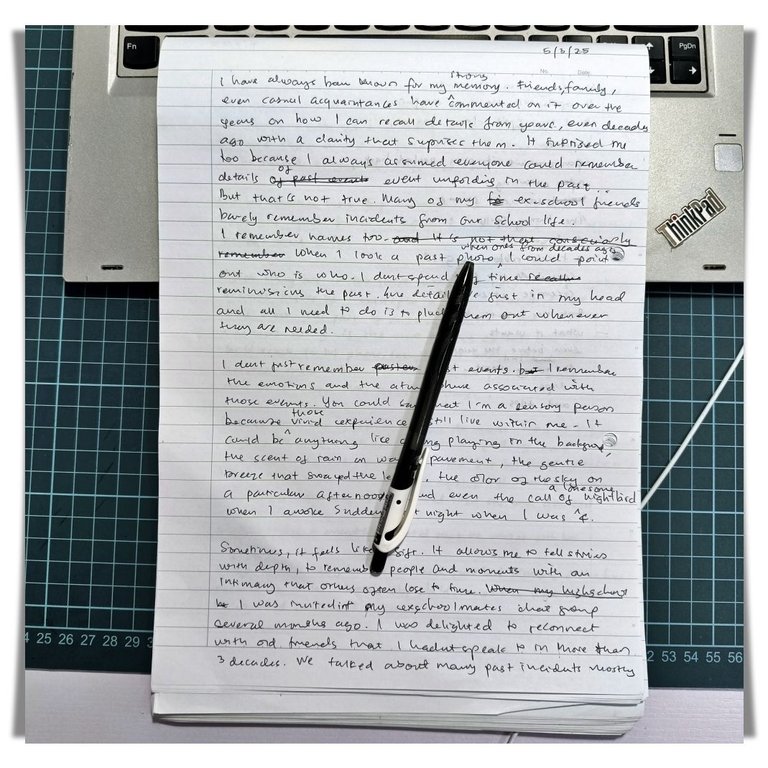 Fn
PgDn
ThinkPad
5/3/25
No.
Date
I have always been known for my strong memory. Friends, family,
even casual acquaintances have commented on it over the
years on how I can recall details from years, even decades
ago with a clarity that suprises them. It suprised me
too because I always assumed everyone could remember
details of past events event unfolding in the past..
But that's not true. Many of my ex-school friends
barely remember incidents from our school life.
I remember names too. and it's not that consciously
remember when I look a past photo, when ones from decades ago I could point
out who is who. I dont spend time
reminiscing the past. the detail just in my head
and all I need to do is to pluck them out whenever
they are needed.
I dont just remember past events. but I remember
the emotions and the atmosphere associated with
those events. You could say that I'm a sensory person
because those vivid experience still live within me. It
could be anything like song playing in the background,
the scent of rain on pavement, the gentle
breeze that swayed the the color of the sky on
a particular afternoon and even the call of a lonesome nightbird
when I awoke suddenly at night when I was 4.
Sometimes, it feels like gift. It allows me to tell stories
with depth, to remember people and moments with an
intimacy that others often lose to time. When my highschool
I was invited in my exschoolmates chat group
several months ago. I was delighted to reconnect
with old friends that I hadnt speak to in more than
3 decades. We talked about many past incidents mostly
24 25 26 27 28 29 3
52 53 54 55 56